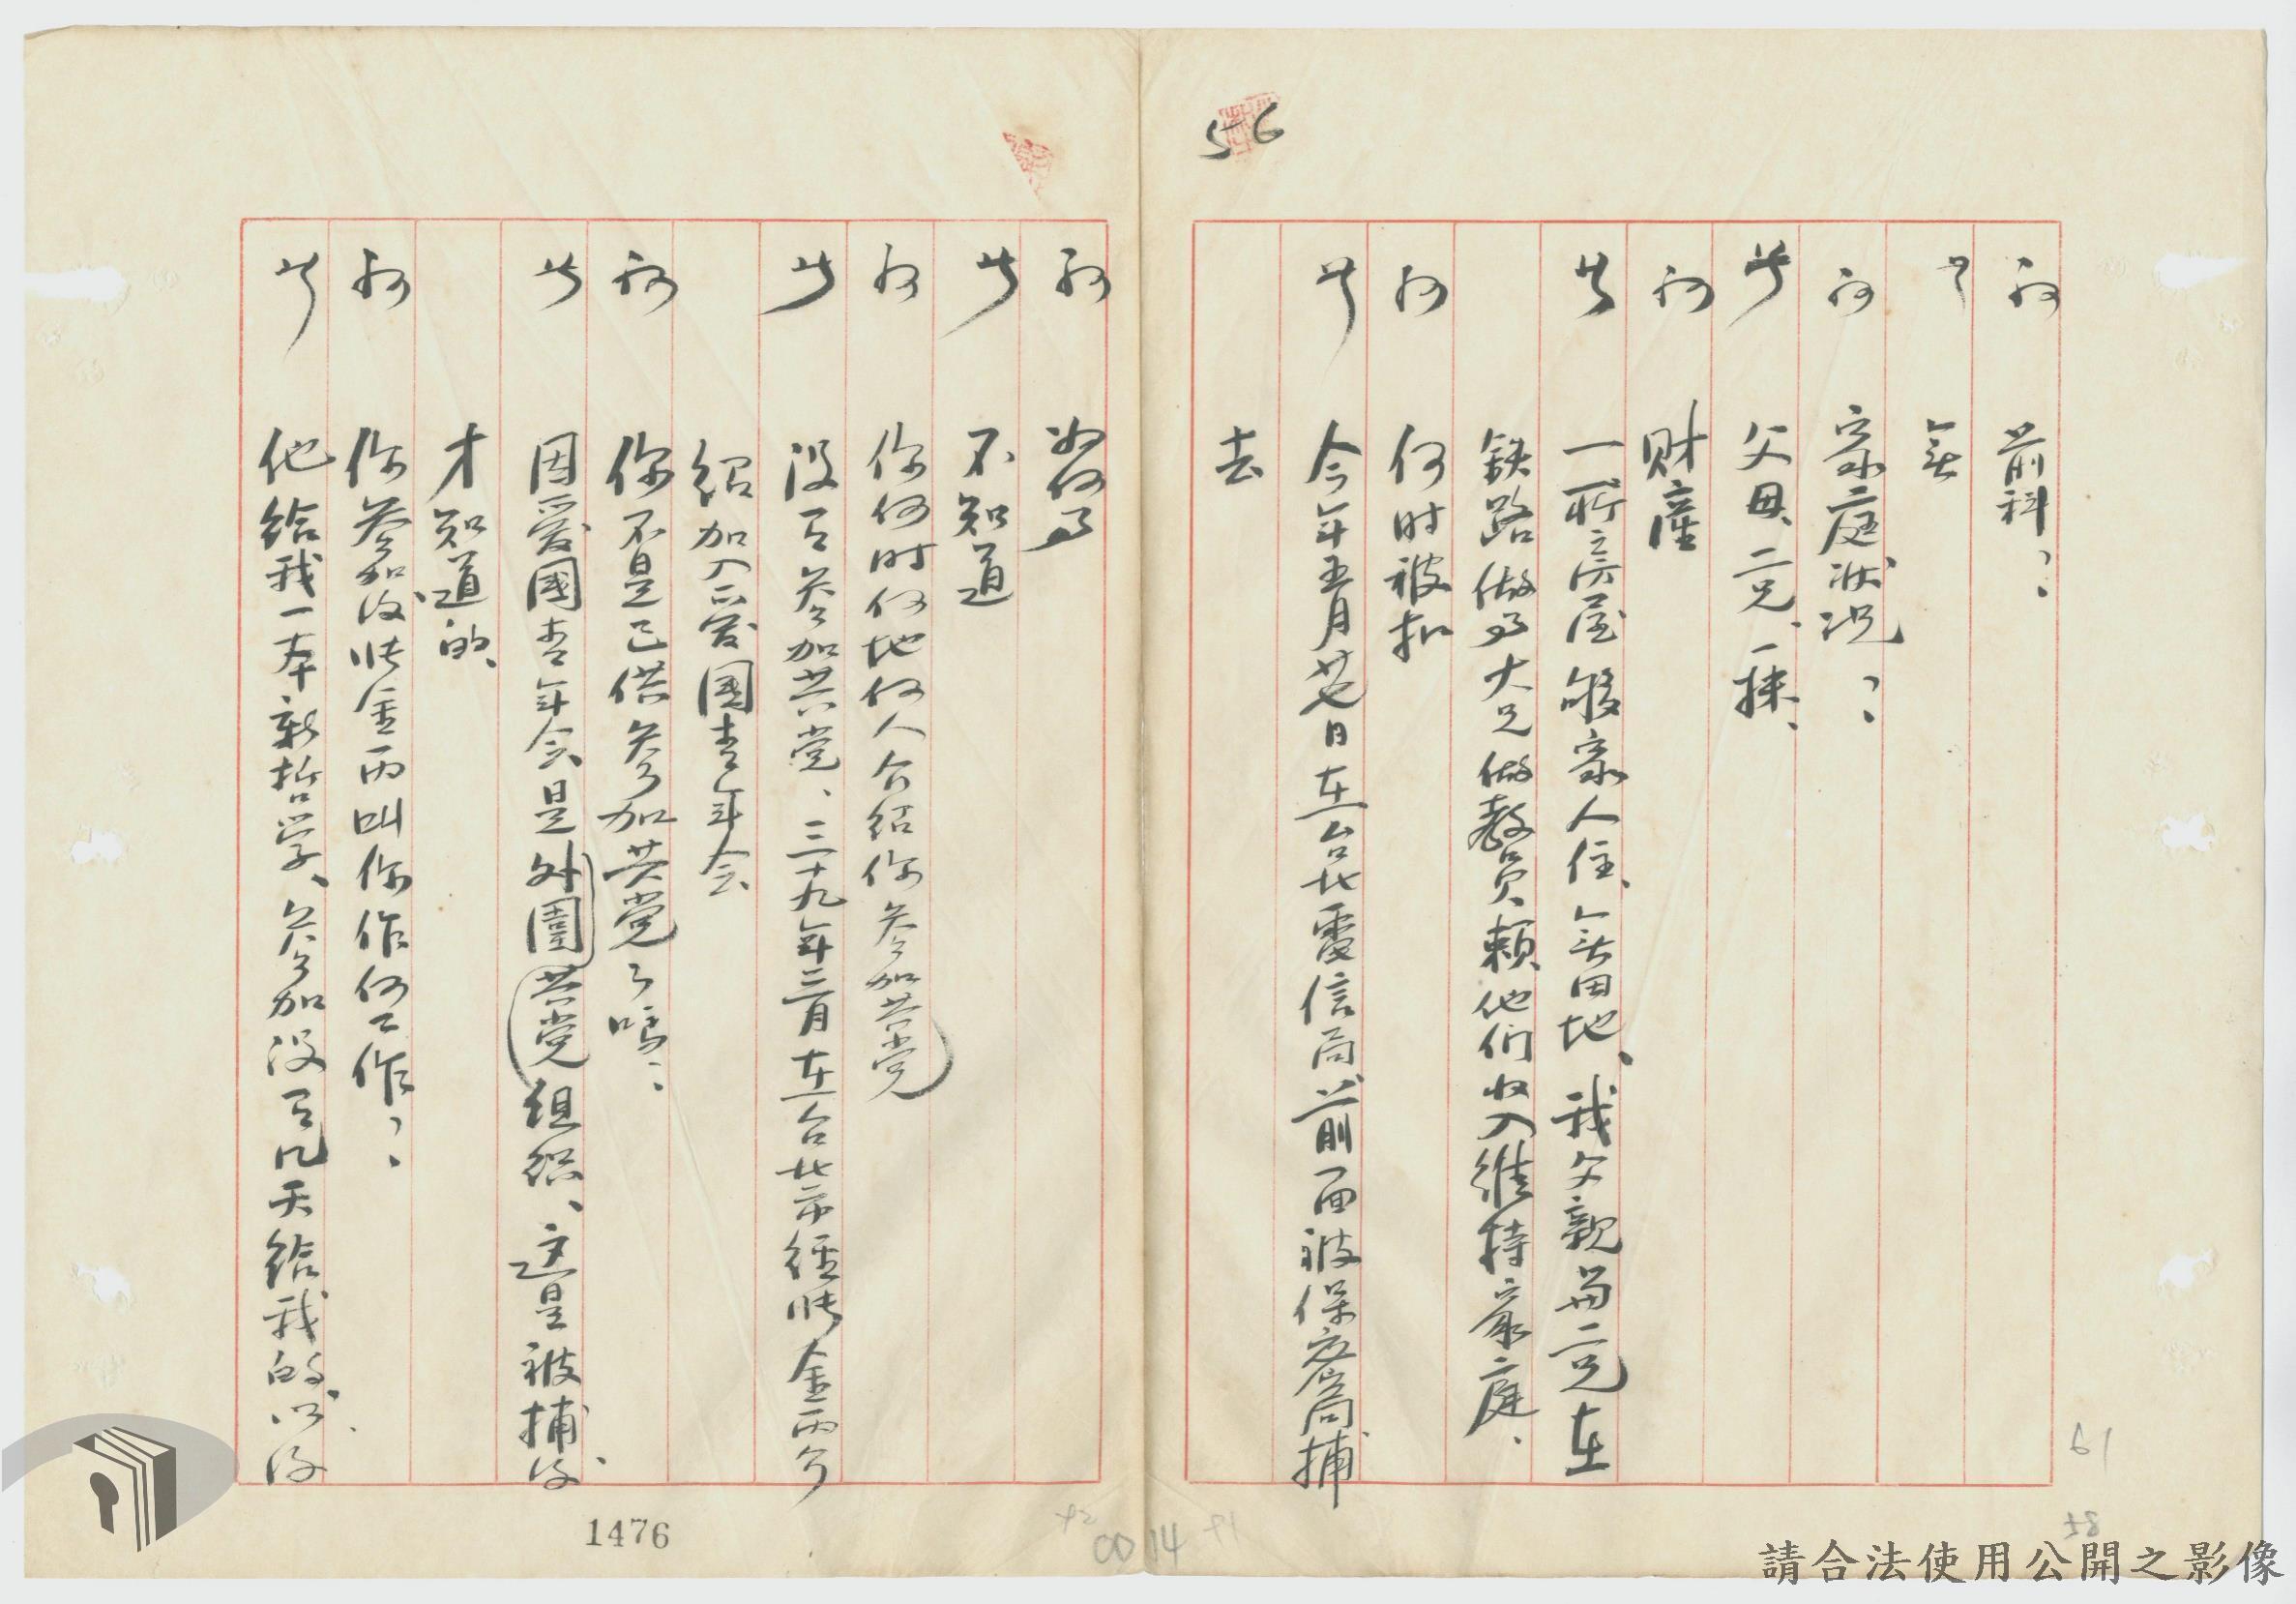 56
问 前科?
答 無
问 家庭狀况?
答 父母、二兄、一妹、
问 财產
答 一所房屋够家人住、無田地、我父親当二兄在
鉄路做事大兄做教员、賴他们收入維持家庭、
问 何时被扣
答 今年五月廿七日在台北電信局前面被保安局捕
去
问 为何事
答 不知道
问 你何时何地何人介紹你參加共党
答 没有參加共党、三十九年三月在台北市經張金雨介
紹加入爱国青年会
问 你不是已供參加共党了嗎?
答 因爱國青年会是外圍共党组织、这是被捕後
才知道的、
问 你參加後張金雨叫你作何工作?
答 他给我一本新哲学、參加没有几天给我的、以後
1476
0014
61
58
請合法使用公開之影像